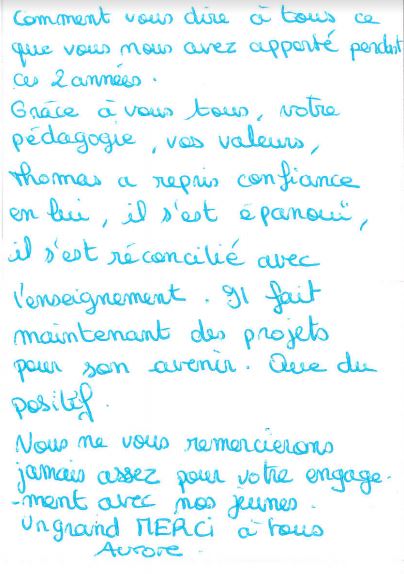 Comment vous dire à tous ce
que vous nous avez apporté pendant
ces 2 années.
Grâce à vous tous, votre
pédagogie, vos valeurs,
Thomas a repris confiance
en lui, il s'est épanoui,
il s'est réconcilié avec
l'enseignement. Il fait
maintenant des projets
pour son avenir. Que du
positif.
Nous ne vous remercierons
jamais assez pour votre engage-
-ment avec nos jeunes.
Un grand MERCi à tous
Aurore.